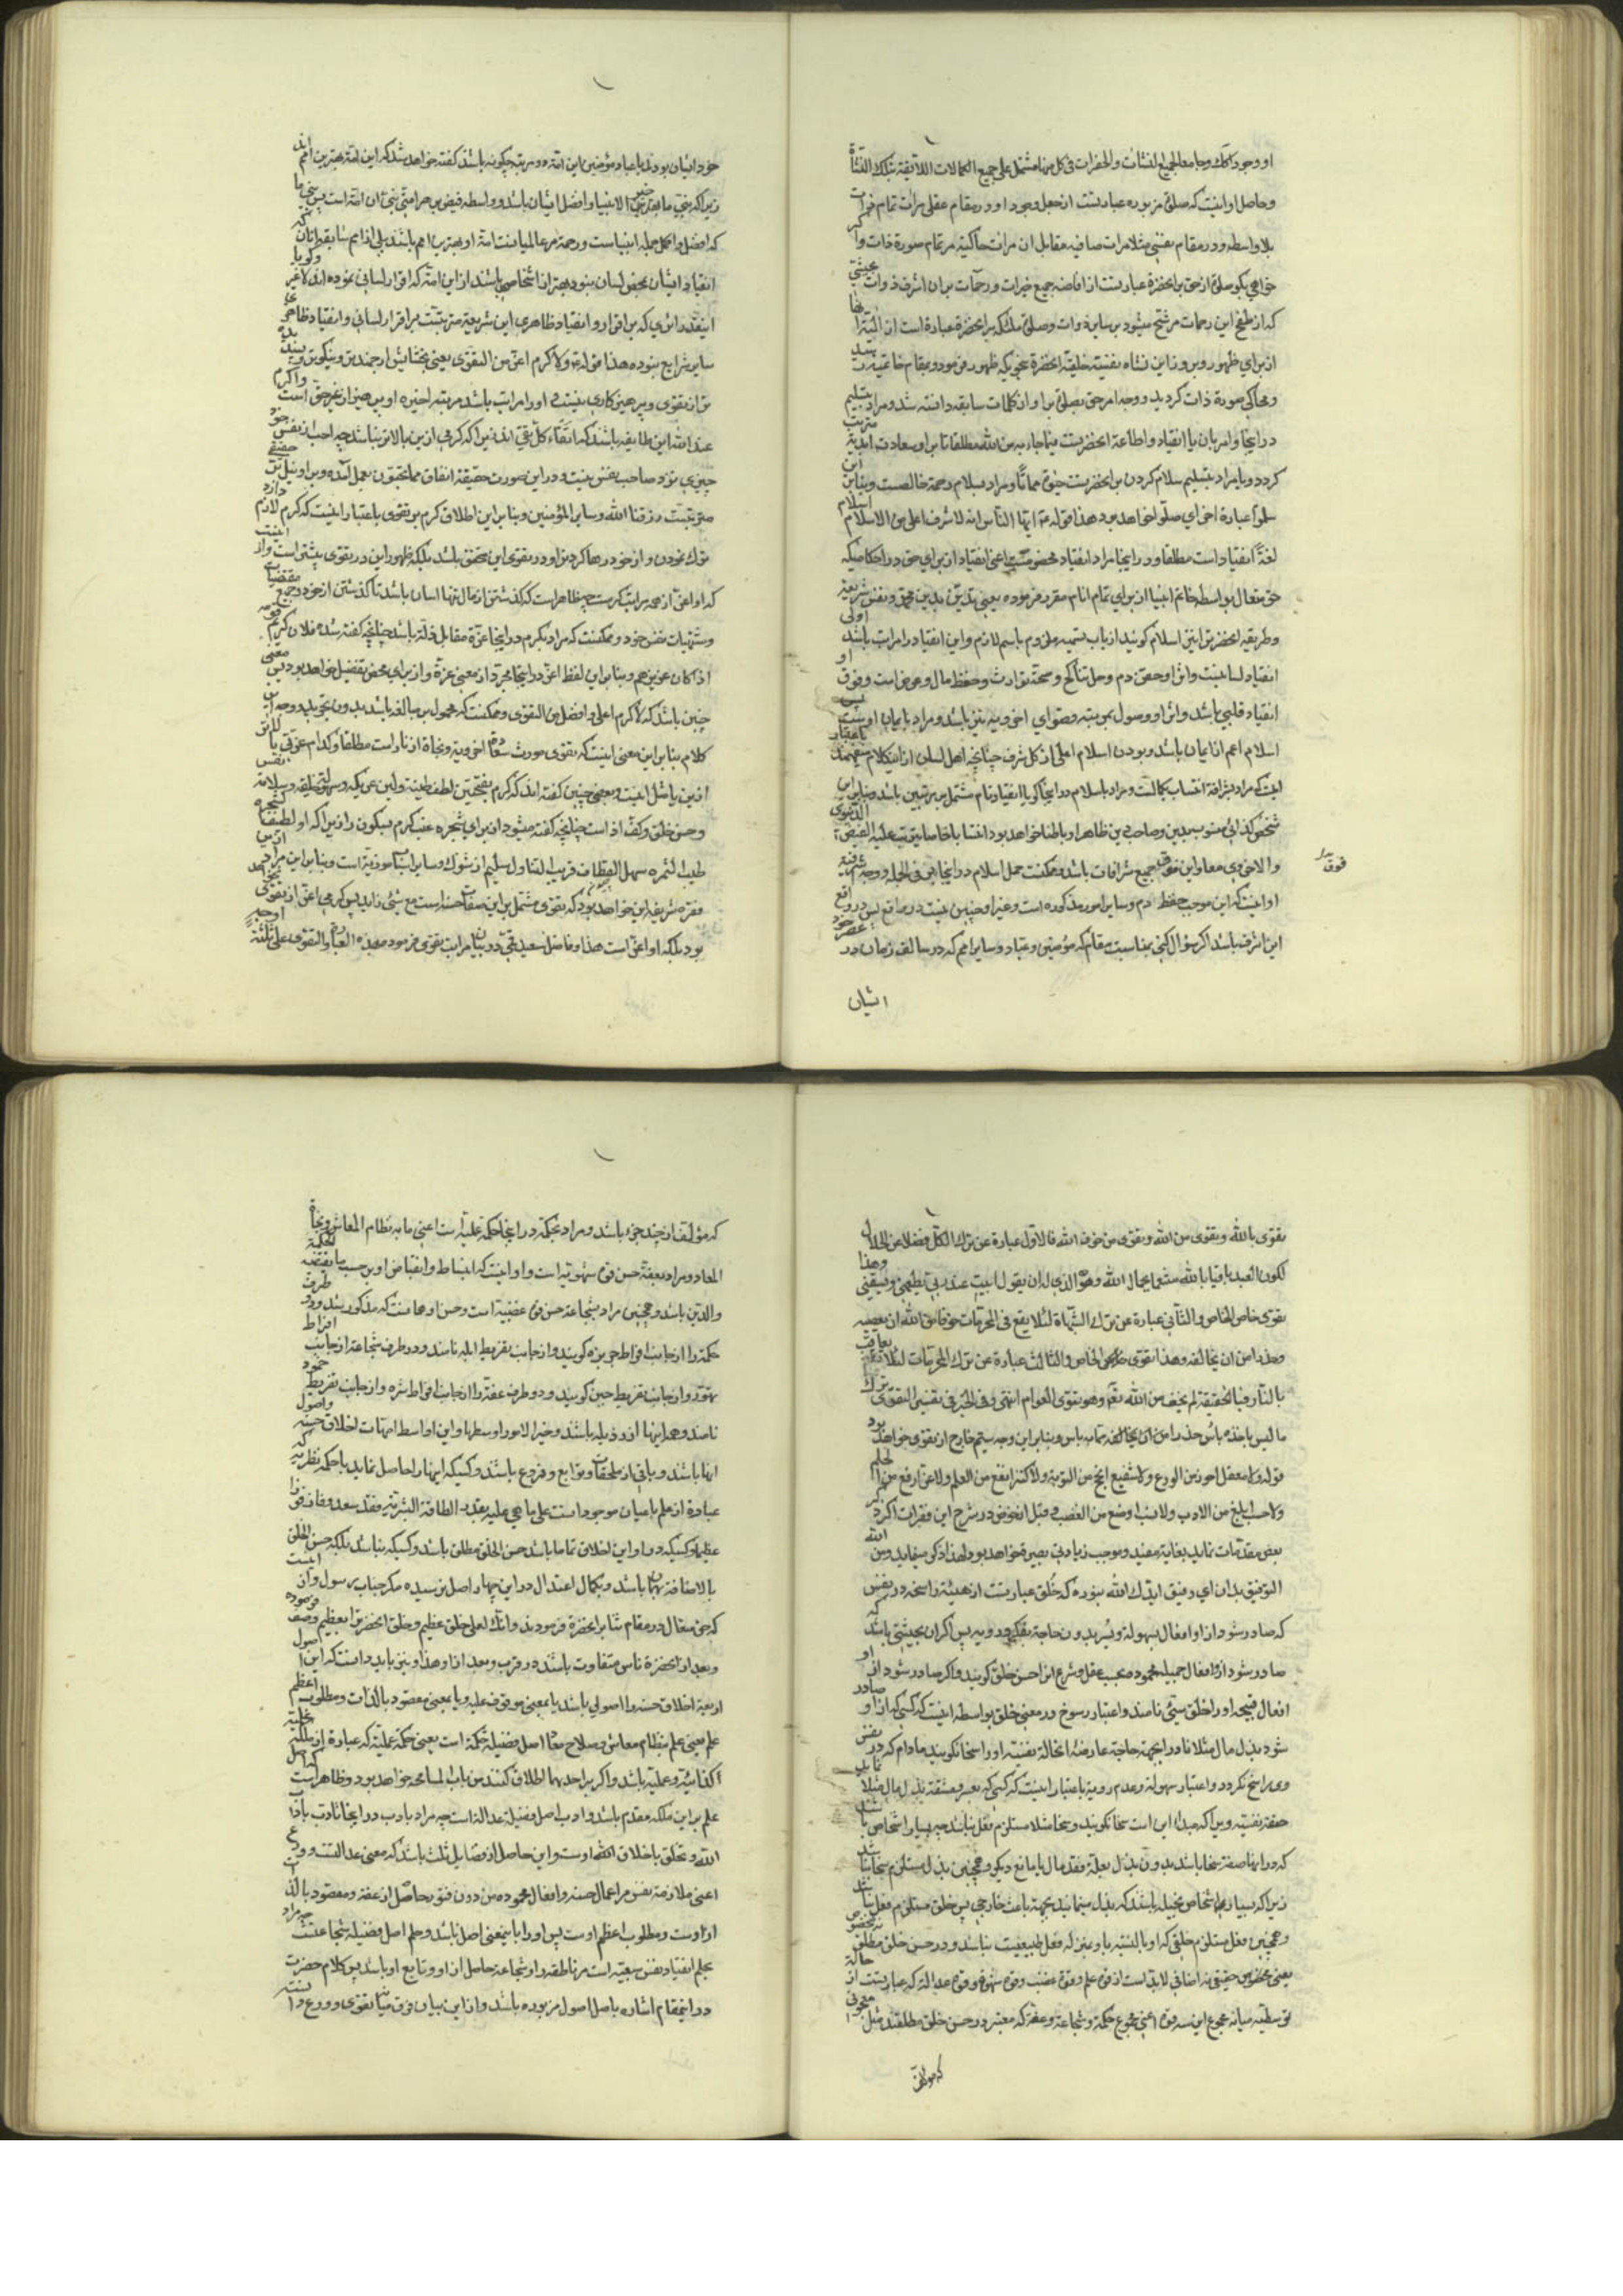 او وجود اکمل و جامع لجمیع النشات والحضرات فی کل منها مشتمل علی جمیع الکمالات اللایقة بتلک النشأة
وحاصل او اینست که صلوة مزبوره عبارتست از جعل وجود او در مقام عقلی مرات تمام
بلا واسطه ودر مقام نفسی مثلا مرات صافیه مقابل ان مرات حاکیه مر تمام صورة ذات
خواهی بکو صلوة از حق بر انحضرة عبارتست از افاضه جمیع خیرات ورحمات بران اشرف ذوات
که از طفح این رحمات مرشح میشود بر سایر ذوات وصلوة ملئکه بر انحضرة عبارة است از
از برای ظهور وبروز این نشاه نفسیه خلقیه انحضرة بنحویکه ظهور فرمود ومقام خاتمیت
ومحاکی صورة ذات کردید ووجه امر حق بصلوة بر او از کلمات سابقه دانسته شد ومراد بتسلیم
در اینجا وامر بان یا انقیاد واطاعة انحضرتست فیما جاء به من الله مطلقا تا بر او سعادت ابدیه
کردد ویا مراد بتسلیم سلام کردن بر انحضرتست حیوة ومماتا ومراد بسلام رحمة خالصست وبنابر این
سلموا عبارة اخرای صلوا خواهد بود هذا قوله ع ایها الناس انه لا شرف اعلی من الاسلام
لغة انقیاد است مطلقا ودر اینجا مراد انقیاد مخصوصست اعنی انقیاد از برای حق در احکامیکه
حق متعال بواسطه خاتم انبیا از برای تمام انام مقرر فرموده یعنی تدین بدین محمدی ونفس شریعة
وطریقه انحضرترا نیز اسلام کویند از باب تسمیه ملزوم باسم لازم واین انقیاد را مراتب باشد اولی
انقیاد لسانیست واثر او حقن دم وحل تناکح وصحة توارث وحفظ مال وعرض است وفوق او
انقیاد قلبی باشد واثر او وصول بمرتبه قصوای اخرویه نیز باشد ومراد بایمان اوست پس
اسلام اعم از ایمان باشد وبودن اسلام اعلی از کل شرف چنانچه اهل لسان از اینکلام میفهمند باعتبار
اینکه مراد بشرافة انتساب بکمالست ومراد باسلام در اینجا کویا انقیاد تام مشتمل بر مرتبتین باشد وبنابر این
شخص کذائی منسوب بدین وصاحب دین ظاهرا وباطنا خواهد بود
والاخروی معا واین فوق جمیع شرافات باشد وممکنست حمل اسلام در اینجا بر فی الجمله ووجه شرافة
او اینست که این موجب حفظ دم وسایر امور مذکوره است وغیر او چنین نیست در واقع پس در واقع
این اشرف باشد اکر سؤال کنی بمناسبت مقام که مؤمنین وعباد وسایر امم که در سالف زمان در عصر خود
ایشان
فوق
خود ایشان بودند با عباد ومؤمنین این امة در مرتبه چکونه باشند کفته خواهد شد که این امة بهترین امم اند
زیرا که نبی ما بهترین الانبیا وافضل ایشان باشد وواسطه فیض بر هر امتی نبی ان امة است پس نبی ما
که افضل واکمل جمله انبیاست ورحمة مر عالمیانست امة او بهترین امم باشند بلی از امم سابقه انان که
انقیاد ایشان بمحض لسان نبود بهتر از اشخاصی باشند از این امة که اقرار لسانی نموده اند لا غیر وکویا
اینقدر اثری که بر اقرار وانقیاد ظاهری این شریعة مترتبست بر اقرار لسانی وانقیاد ظاهری
سایر شرایع نبوده هذا قوله ع ولا کرم اعز من التقوی یعنی بخشایش ارجمندتر ونیکوتر وپسندیده
تر از تقوی وپرهیزکاری نیست واو را مراتب باشد مرتبه اخیره او پرهیز از غیر حق است واکرم
عند الله این طایفه باشند کما اتقاء کل تقی اند زیرا که کرمی ازین بالاتر نباشد چه احب از نفس خود
چیزی نزد صاحب نفس نیست ودر این صورت حقیقة انفاق مما تحبون بعمل آمده وبر او نیل بر حقیقی
مترتبست رزقنا الله وسایر المؤمنین وبنابر این اطلاق کرم بر تقوی باعتبار اینست که کرم لازم دارد
ترک نمودن واز خود رها کردنرا ودر تقوی این متحقق باشد بلکه ظهور این در تقوی بیشتر است واز اینست
که او اعز از همه مراتب کرمست چه ظاهر است که کذشتن از مال تنها اسان باشد تا کذشتن از خود وجمیع مقتضیات
ومشتهیات نفس خود وممکنست که مراد بکرم در اینجا عزة مقابل ذلة باشد چنانچه کفته شده فلان کرم
اذا کان عزیزهم وبنابر این لفظ اعز در اینجا مجرد از معنی عزة واز برای محض تفضیل خواهد بود پس معنی
چنین باشد که لا کرم اعلی وافضل من التقوی وممکنست که محمول بر مبالغه باشد بدون تجرید ووجه این
کلام بنابر این معنی اینست که تقوی مورث سعادة اخرویة ونجاة از نار است مطلقا وکدام عزتی بالاتر
ازین باشد اینست وبعضی چنین کفته اند که کرم بفتحتین لطف طینة ولین عریکه وسهولت خلیقه وسلامة نفس
وحسن خلق وکف اذا است چنانچه کفته میشود از برای شجره عنب کرم بسکون را زیرا که او لطیفة الشجره
طیب الثمره سهل القطاف قریب التناول سلیم از شوک وسایر اسباب موذیة است وبنابر این مراد ازین
فقره شریفه این خواهد بود که تقوی مشتمل بر این صفات حسنه است مع شیء زاید پس کرمی اعز از تقوی نخواهد
بود بلکه او اعز است هذا وفاضل سعید قمی در بیان مراتب تقوی فرمود بهذه العبارة والتقوی علی ثلثة اوجه
تقوی بالله وتقوی من الله وتقوی من خوف الله فالاول عبارة عن ترک الکل فضلا عن الحلال
لکون العبد باقیا بالله مشوبا بجمال الله وهو الذی له ان یقول ابیت عند ربی یطعمنی ویسقینی وهذا
تقوی خاص الخاص والثانی عبارة عن ترک الشبهاة لئلا یقع فی المحرمات خوفا من الله ان یعصیه
وحذرا من ان یخالفه وهذا تقوی الخاص والثالث عبارة عن ترک المحرمات لئلا یعاقب
بالنار فبالحقیقة لم یخف من الله تع وهو تقوی العوام انتهی وفی الخبر فی تفسیر التقوی ترک
ما لیس باخذه بأس حذرا من ان یخالفه مما به باس وبنابر این وجه سیم خارج از تقوی خواهد بود
قوله ولا معقل احرز من الورع ولا شفیع انجح من التوبة ولا کنز انفع من العلم ولا عز ارفع من الحلم
ولا حسب ابلغ من الادب ولا نسب اوضع من الغضب وقبل از خوض در شرح این فقرات اکر ذکر
بعض مقدمات نماید بغایة مفید وموجب زیادتی بصیرة خواهد بود لهذا ذکر مینماید ومن الله
التوفیق بدان ای رفیق ایدک الله بنوره که خلق عبارتست از هیئة راسخه در نفس
که صادر شود از او افعال بسهولة ویسر بدون حاجة بفکر ورویه پس اکر ان بحیثی باشد که
صادر شود از او افعال جمیله محموده بحسب عقل وشرع انرا حسن خلق کویند واکر صادر شود از او
افعال قبیحه او را خلق سیئ نامند واعتبار رسوخ در معنی خلق بواسطه اینست که کسی که از او صادر
شود بذل مال مثلا نادرا بجهة حاجة عارضه انحالة نفسیه او را سخا نکویند مادام که در نفس
وی راسخ نکردد واعتبار سهولة وعدم رویة باعتبار اینست که کسی که بعسر ومشقة بذل مال مثلا نماید
صفة نفسیه ویرا که مبداء این است سخا نکویند وسخا مثلا مستلزم فعل نباشد چه بسیار اشخاص باشند
که در انها صفة سخا باشد بدون بذل بعلة فقد مال یا مانع دیکر وهمچنین بذل مستلزم سخا نباشد
زیرا که بسیاری اشخاص بخیله باشند که بذل مینمایند بجهة باعث خارجی پس خلق مستلزم فعل نباشد
وهمچنین فعل مستلزم خلقی که او بالنسبه باو بمنزله فعل طبیعیست نباشد ودر حسن خلق مطلق
یعنی حقیقی نه اضافی لابد است از قوة علم وقوة غضب وقوة شهوة وقوة عدالة که عبارتست از حالة
توسطیه میانه مجموع این سه قوه اعنی مجموع حکمة وشجاعة وعفة که معتبر در حسن خلق مطلقند مثل معجونی
که مؤلف
که مؤلف از چند جزء باشد ومراد بحکمة در اینجا حکمة عملیة است اعنی ما به نظام المعاش ونجاة
المعاد ومراد بعفة حسن قوه شهویة است واو اینست که انبساط وانقباض او بر حسب ما یقتضیه الحکمة
والدین باشد وهمچنین مراد بشجاعة حسن قوة غضبیة است وحسن او همانست که مذکور شد ودو طرف
حکمة را از جانب افراط جربزه کویند واز جانب تفریط ابله نامند ودو طرف شجاعة از جانب افراط
تهور واز جانب تفریط جبن کویند ودو طرف عفة را از جانب افراط شره واز جانب تفریط خمود
نامند وهمه اینها از رذیله باشند وخیر الامور اوسطها واین اواسط امهات اخلاق حسنه واصول
انها باشند وباقی از ملحقات وتوابع وفروع باشند وکسیکه اینها را حاصل نماید با حکمة نظریه که
عبارة از علم باعیان موجودات است علی ما هی علیه بقدر الطاقة البشریة فقد سعد وفاز فوزا
عظیما وکسیکه در او این اخلاق تماما باشد حسن الخلق مطلق باشد وکسیکه نباشد بلکه حسن الخلق
بالاضافة بهمان باشد وبکمال اعتدال در این چهار اصل نرسیده مکر جناب رسول واز اینست
که حق متعال در مقام ثنا بر انحضرة فرمودند وانک لعلی خلق عظیم وخلق انحضرترا بعظیم وصف فرموده
وبعد از انحضرة ناس متفاوت باشند در قرب وبعد از او هذا ونیز باید دانست که این اصول
اربعة اخلاق حسنه را اصولی باشد یا بمعنی موقوف علیه ویا بمعنی مقصود بالذات ومطلوب اعظم
علم یعنی علم بنظام معاش وصلاح معاد اصل فضیلة حکمة است یعنی حکمة عملیة که عبارة از ملکه
اکتسابیة وعملیة باشد واکر بر احدهما اطلاق کنند من باب المسامحه خواهد بود وظاهر است
علم بر این ملکه مقدم باشد وادب اصل فضیلة عدالة است چه مراد بادب در اینجا تادب باداب
الله وتخلق باخلاق الله اوست واین حاصل از فضایل ثلث باشد که معنی عدالتست وورع
اعنی ملازمة نفس مر اعمال حسنه وافعال محموده من دون فتور حاصل از عفة ومقصود بالذات
از اوست ومطلوب اعظم اوست پس او را باینمعنی اصل باشد وحلم اصل فضیلة شجاعتست چه مراد
بحلم انقیاد نفس سبعیة است مر ناطقه را وشجاعة حاصل از او وتابع او باشد پس کلام حضرت
در اینمقام اشاره باصل اصول مزبوره باشد واز این بیان فرق میانه تقوی وورع